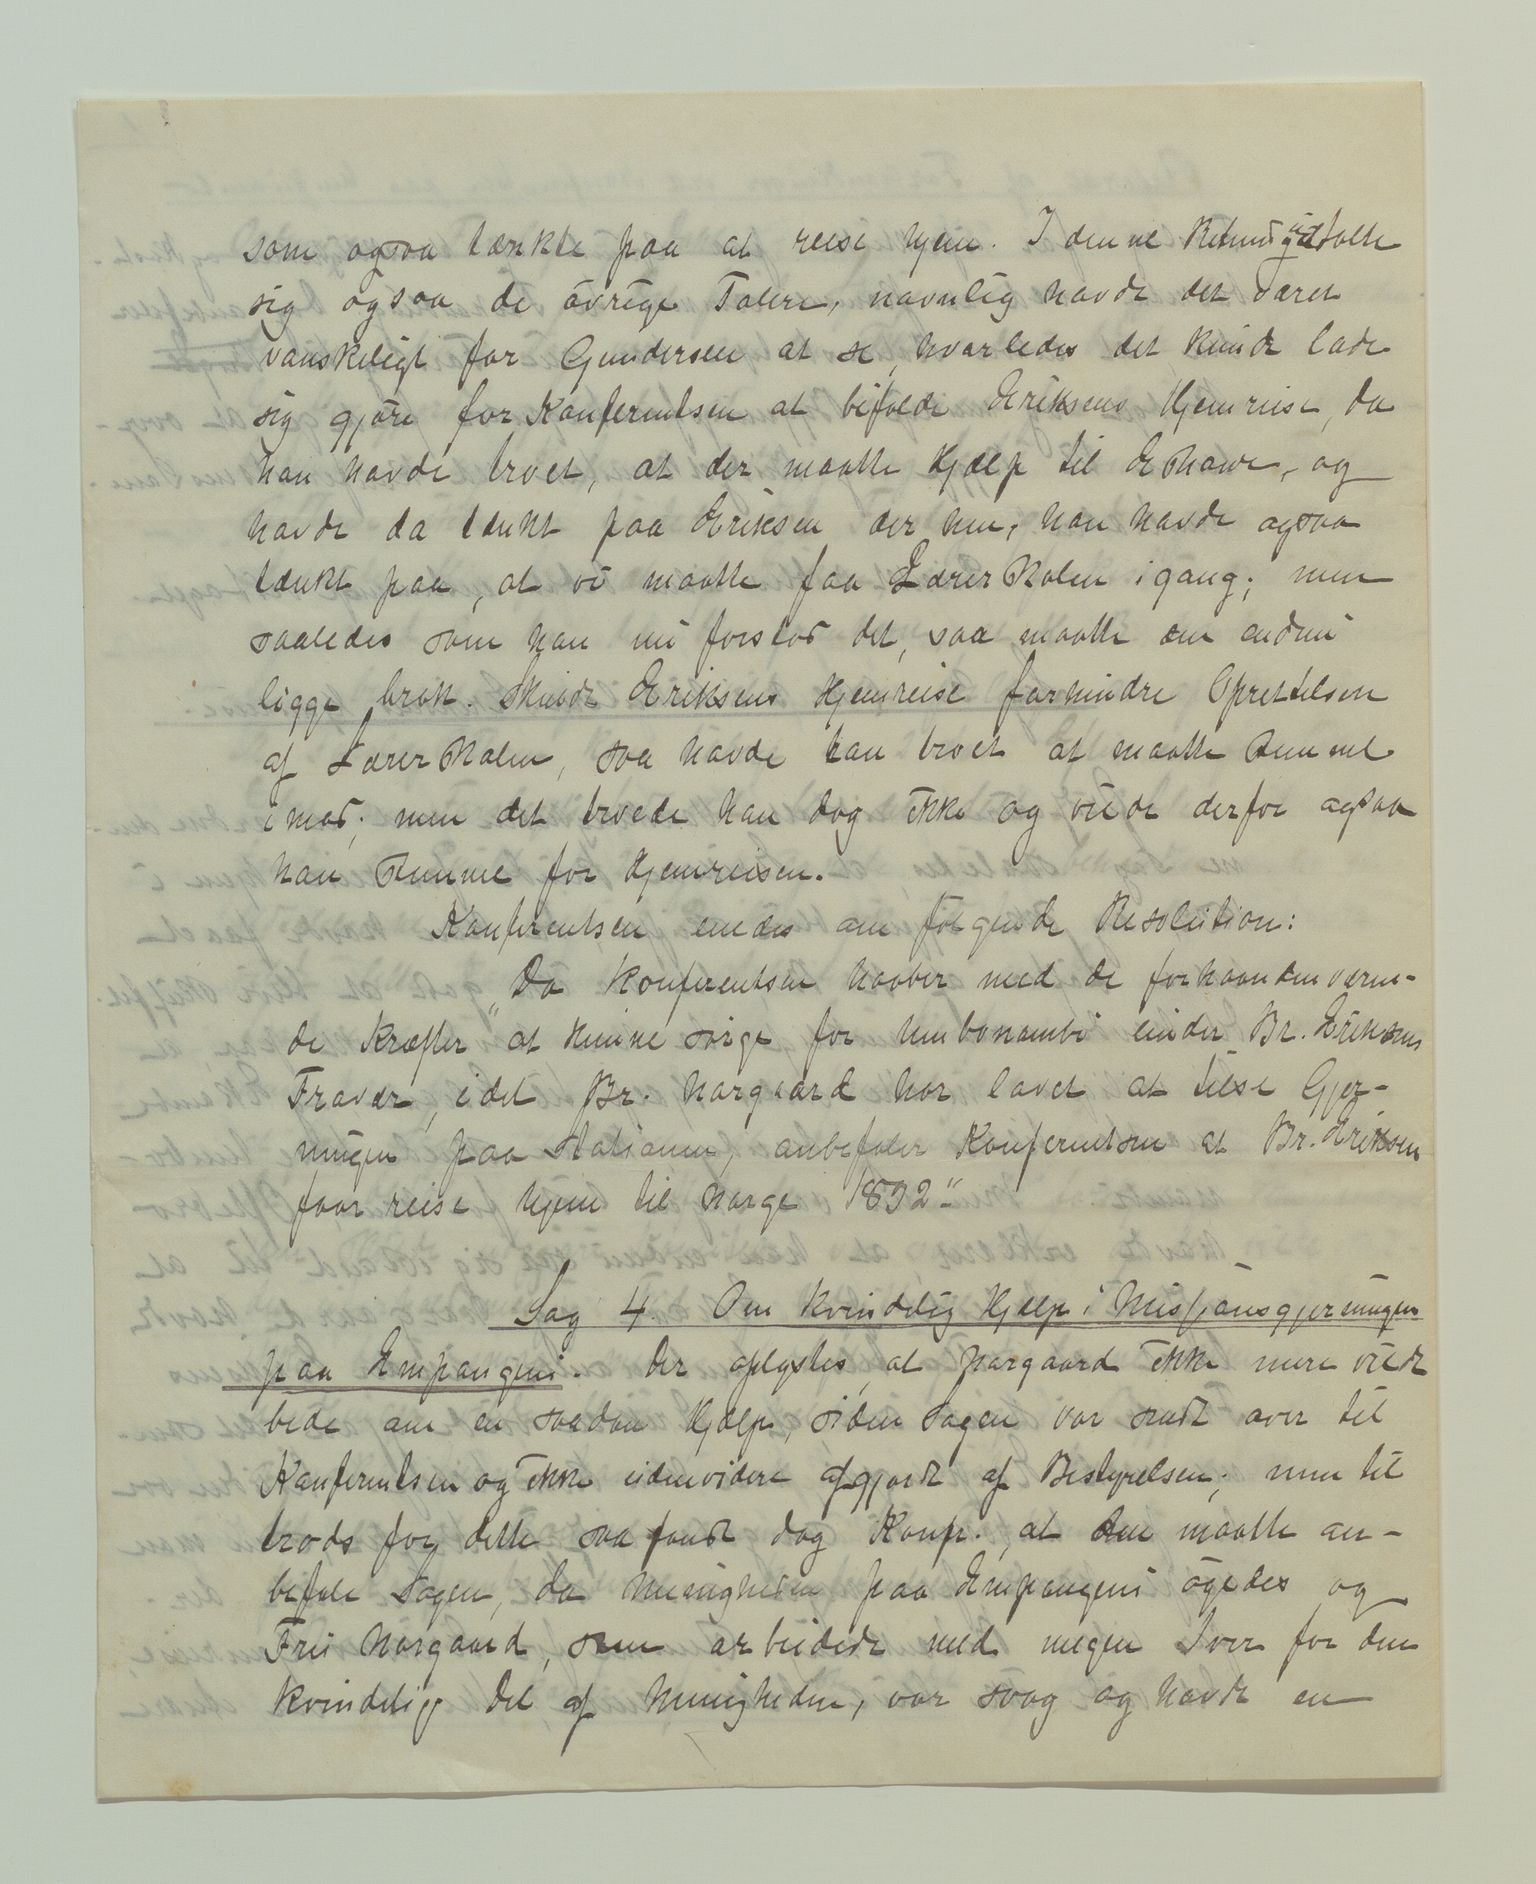 som ogsaa tænkte paa at reise hjem. I denne Retning udtalte
sig ogsaa de övrige Talere, navnlig havde det været
vanskeligt for Gundersen at se, hvorledes det kunde lade
sig gjöre for Konferentsen at bifalde Eriksens Hjemreise, da
han havde troet, at der maatte Hjælp til Eshowe, og
havde da tænkt paa Eriksen der hen, han havde ogsaa
tænkt paa, at vi maatte faa Lærerskolen igang; men
saaledes som han nu forstod det, saa maatte den endnu
ligge brak. Skulde Eriksens Hjemreise forhindre Oprettelsen
af Lærerskolen, saa havde han troet at maatte stemme
imod; men det troede han dog ikke og vilde derfor ogsaa
han stemme for Hjemreisen.
Konferentsen enedes om fölgende Resolution:
"Da Konferentsen haaber med de forhaandenværen-
de Kræfter at kunne sörge for Umbonambi under Br. Eriksens
Fravær, idet Br. Norgaard har lovet at tilse Gjer-
ningen paa Stationen, anbefaler Konferentsen at Br. Eriksen
faar reise hjem til Norge 1892"
Sag 4. Om kvindelig Hjælp i Missjonsgjerningen
paa Empangeni. Der oplystes, at Norgaard ikke mere vilde
bede om en saadan Hjælp, siden Sagen var sendt over til
Konferentsen og ikke uden videre afgjordt af Bestyrelsen; men til
trods for dette saa fandt dog Konfr. at den maatte an-
befale Sagen, da Menigheden paa Empangeni ögedes og
Fru Norgaard, som arbeidede med megen Iver for den
kvindelige Del af Menigheden, var svag og havde en